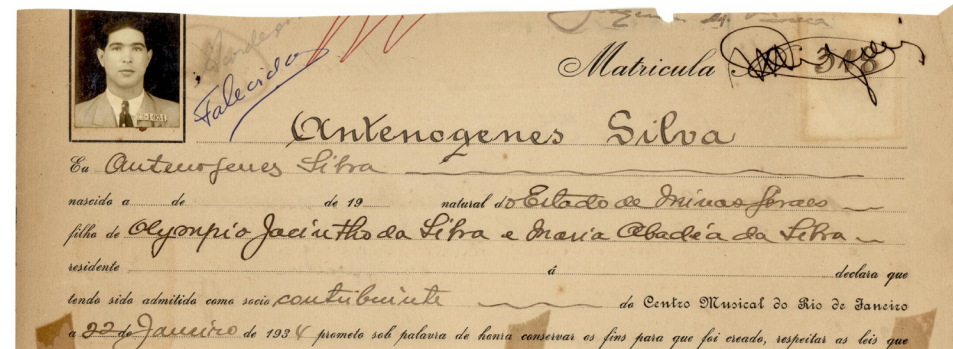 Falecido
Matricula 318
Antenogenes Silva
Eu Antenogenes Silva
nascido a de de 19 natural do Estado de Minas Geraes
filho de Olympio Jacintho da Silva e Maria Abadia da Silva
residente á declara que
tendo sido admitido como socio contribuinte do Centro Musical do Rio de Janeiro
a 22 de Janeiro de 1934 prometo sob palavra de honra conservar os fins para que foi creado, respeitar as leis que